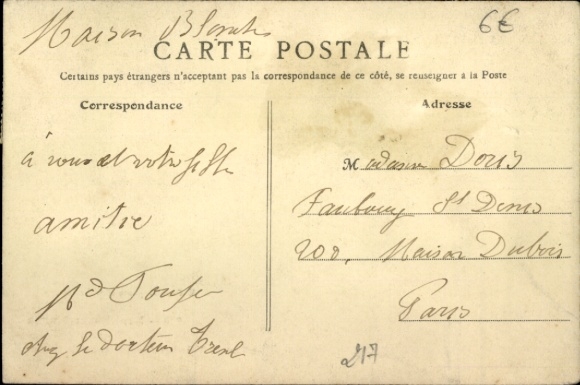 Maison
6€
CARTE POSTALE
Certains pays étrangers n'acceptant pas la correspondance de ce côté, se renseigner à la Poste
Correspondance
à vous et votre
amitié
chez le docteur
Adresse
Madame Doris
Faubourg St Denis
200, Maison Dubois
Paris
217